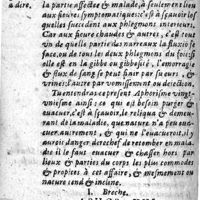 à dire. la partie affectee & malade, à seulement lieu
aux fieures symptomatiques: c'est à sçauoir les-
quelles succedent aux phlegmons interieurs.
Car aux fieures chaudes & autres, c'est tout
vn de quelle partie du narreaux la fluxiõ se
face, ou du tout ou de deux phlegmons du foye; si
elle est en la gibbe ou gibbosité, l'emorragie
& flux de sang se peut finir par sueurs, &
vrines: l'autre par vomissement ou deiection.
Tu entendras ce present Aphorisme vingt-
vniesme ainsi: ce qui est besoin purger &
euacuer, c'est à sçauoir, le reliqua & demeu-
rant de la maladie, que nature n'a peu eua-
cuer autrement, & qui ne l'euacueroit, il y
auroit danger derechef de retomber en mala-
die il le faut euacuer & chasser hors par
lieux & parties du corps les plus commodes
& propices à cest affaire, & mesmement où
nature tend & incline.
I. Breche.